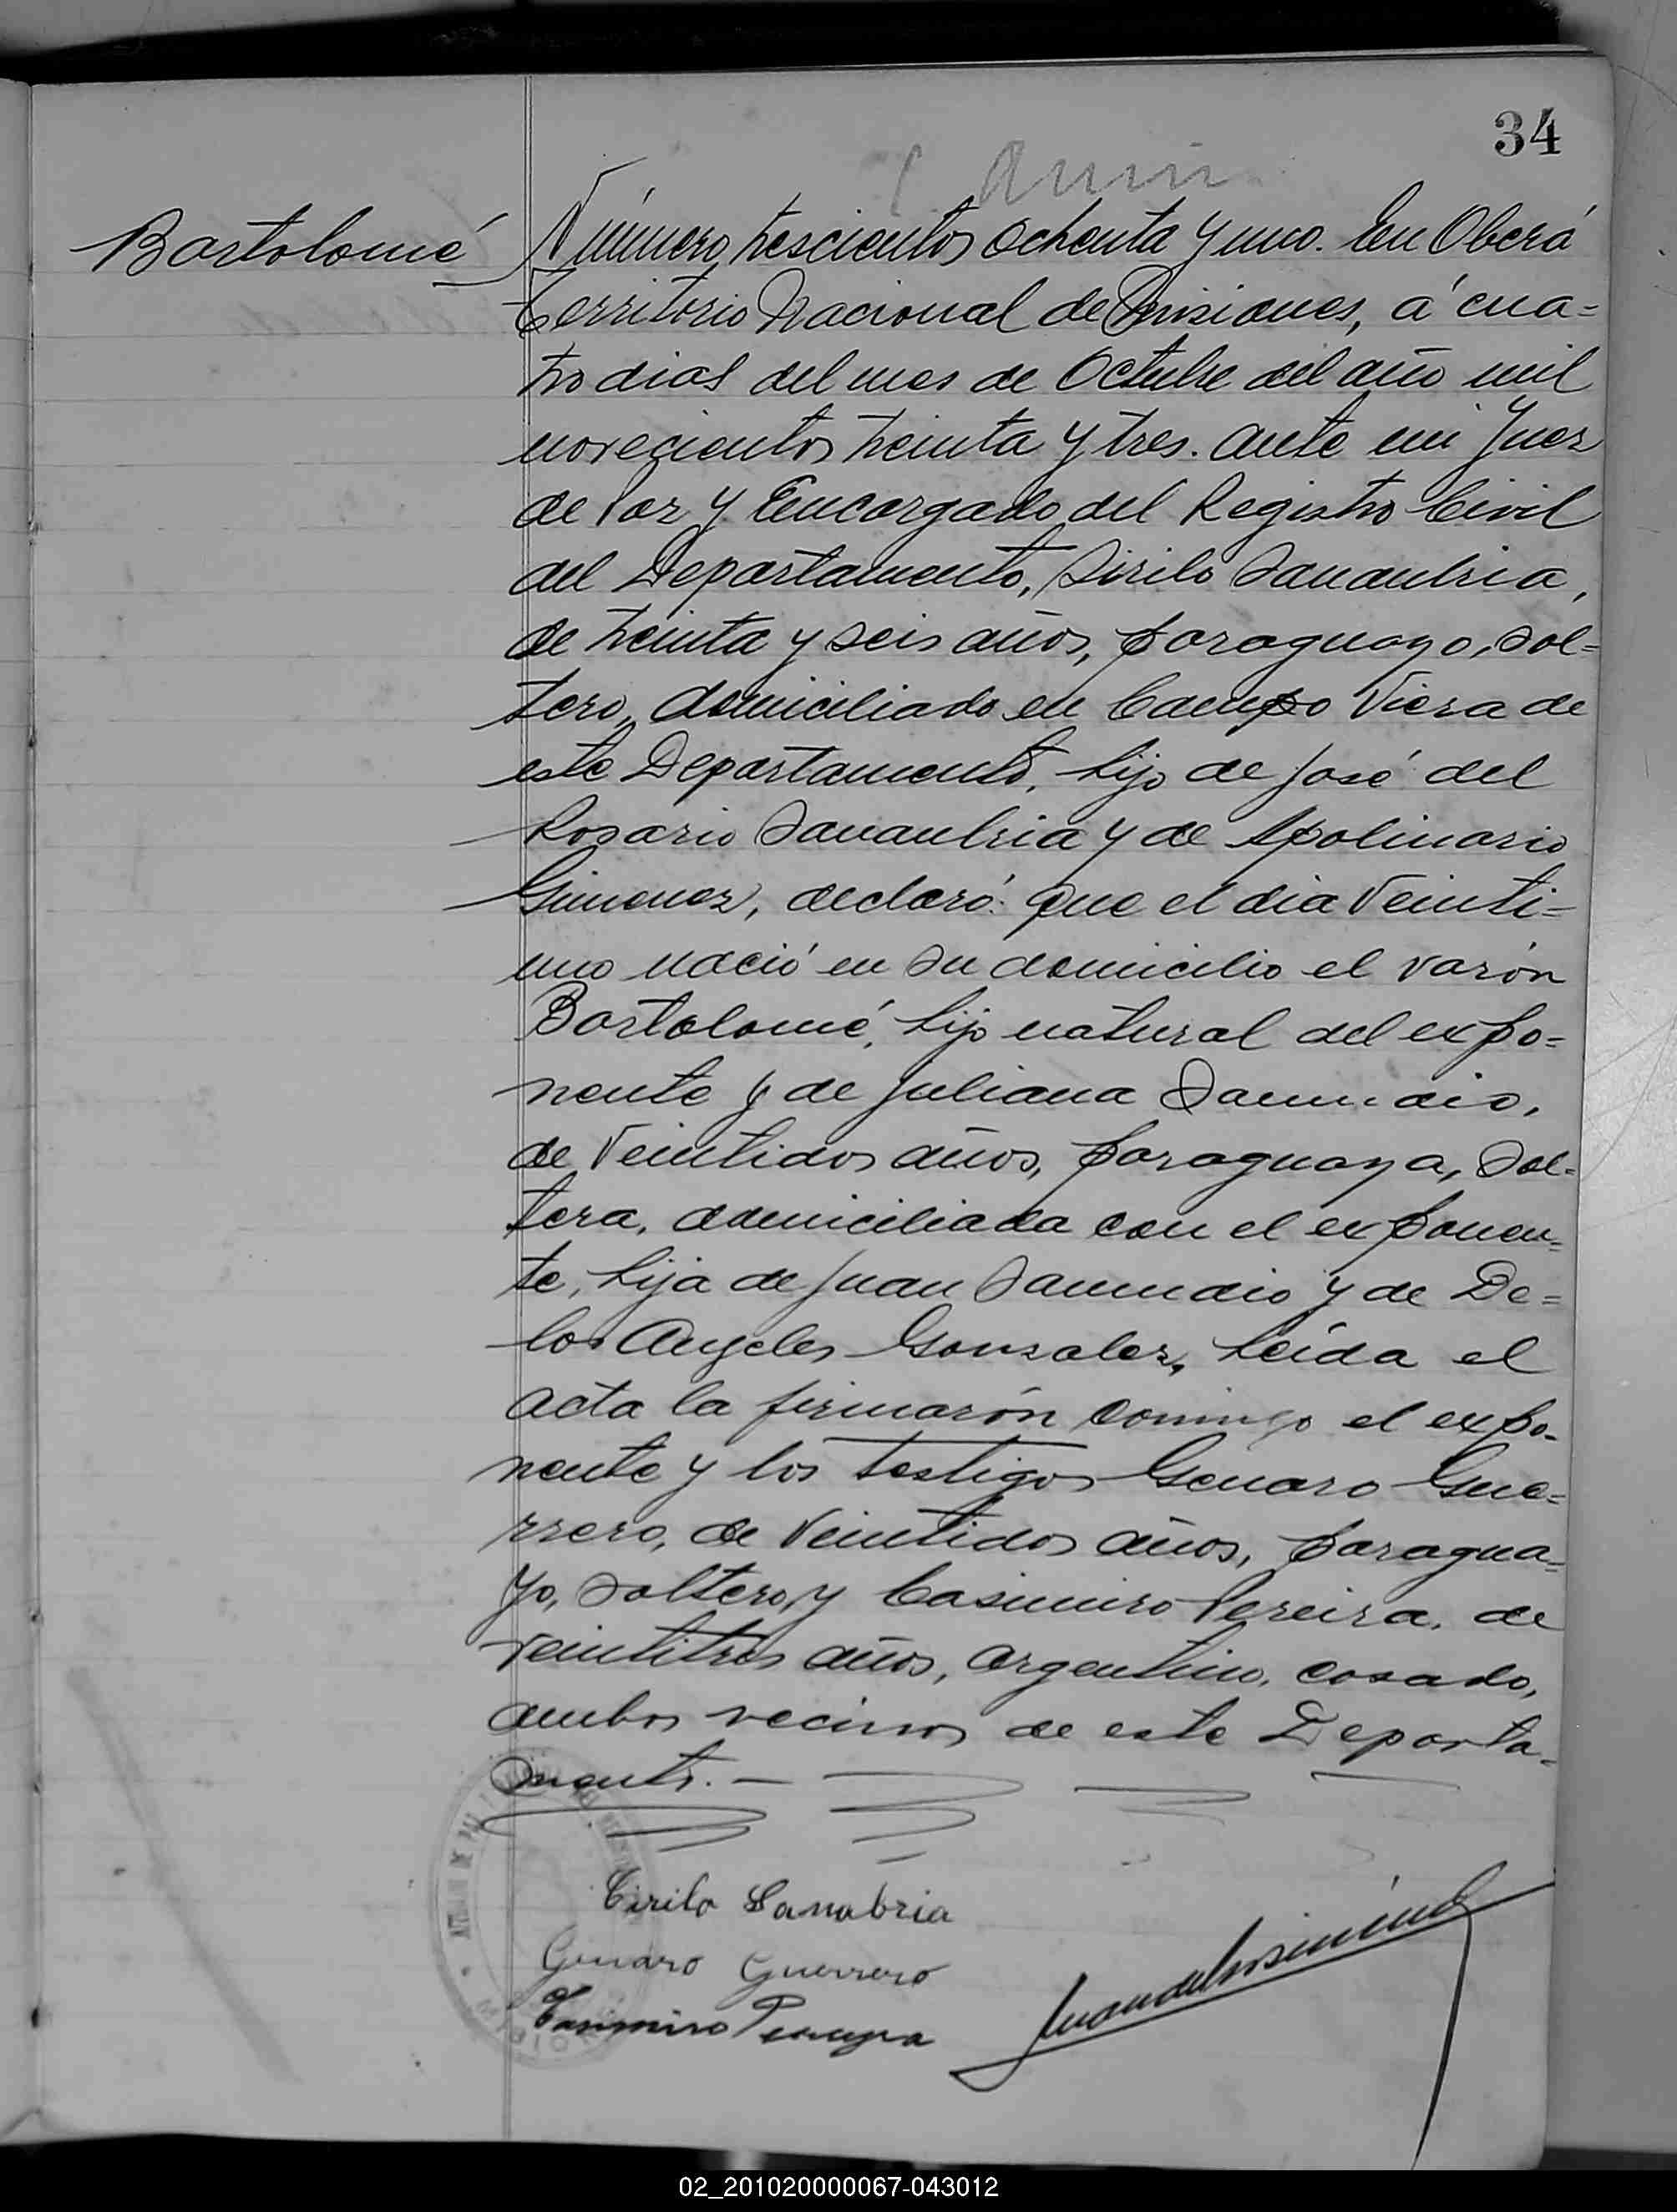 34
Bartolomé
Número trescientos ochenta y uno. En Oberá
Territorio Nacional de Misiones, á cua=
tro dias del mes de Octubre del año mil
novecientos treinta y tres. ante mi Juez
de Paz y Encargado del Registro Civil
del Departamento, Sirilo Sanantria,
de treinta y seis años, paraguayo, sol=
tero, domiciliado en Campo Viera de
este Departamento, hijo de José del
Rosario Sanantria y de Apolinario
Gimenez, declaró: que el dia veinti=
uno nació en su domicilio el varón
Bartolomé, hijo natural del expo=
nente y de Juliana Samudio,
de veintidos años, paraguaya, sol=
tera, domiciliada con el exponen=
te, hija de Juan Samudio y de De=
los Angeles Gonzalez, Leída el
acta la firmarón conmigo el expo=
nente y los testigos Genaro Gue=
rrero, de veintidos años, paragua=
yo, soltero, y Casimiro Pereira, de
veintitres años, argentino, casado,
ambos vecinos de este Departa=
mento. —
Cirilo Sanabria
Genaro Guerrero
Casimiro Pereyra
02_201020000067-043012